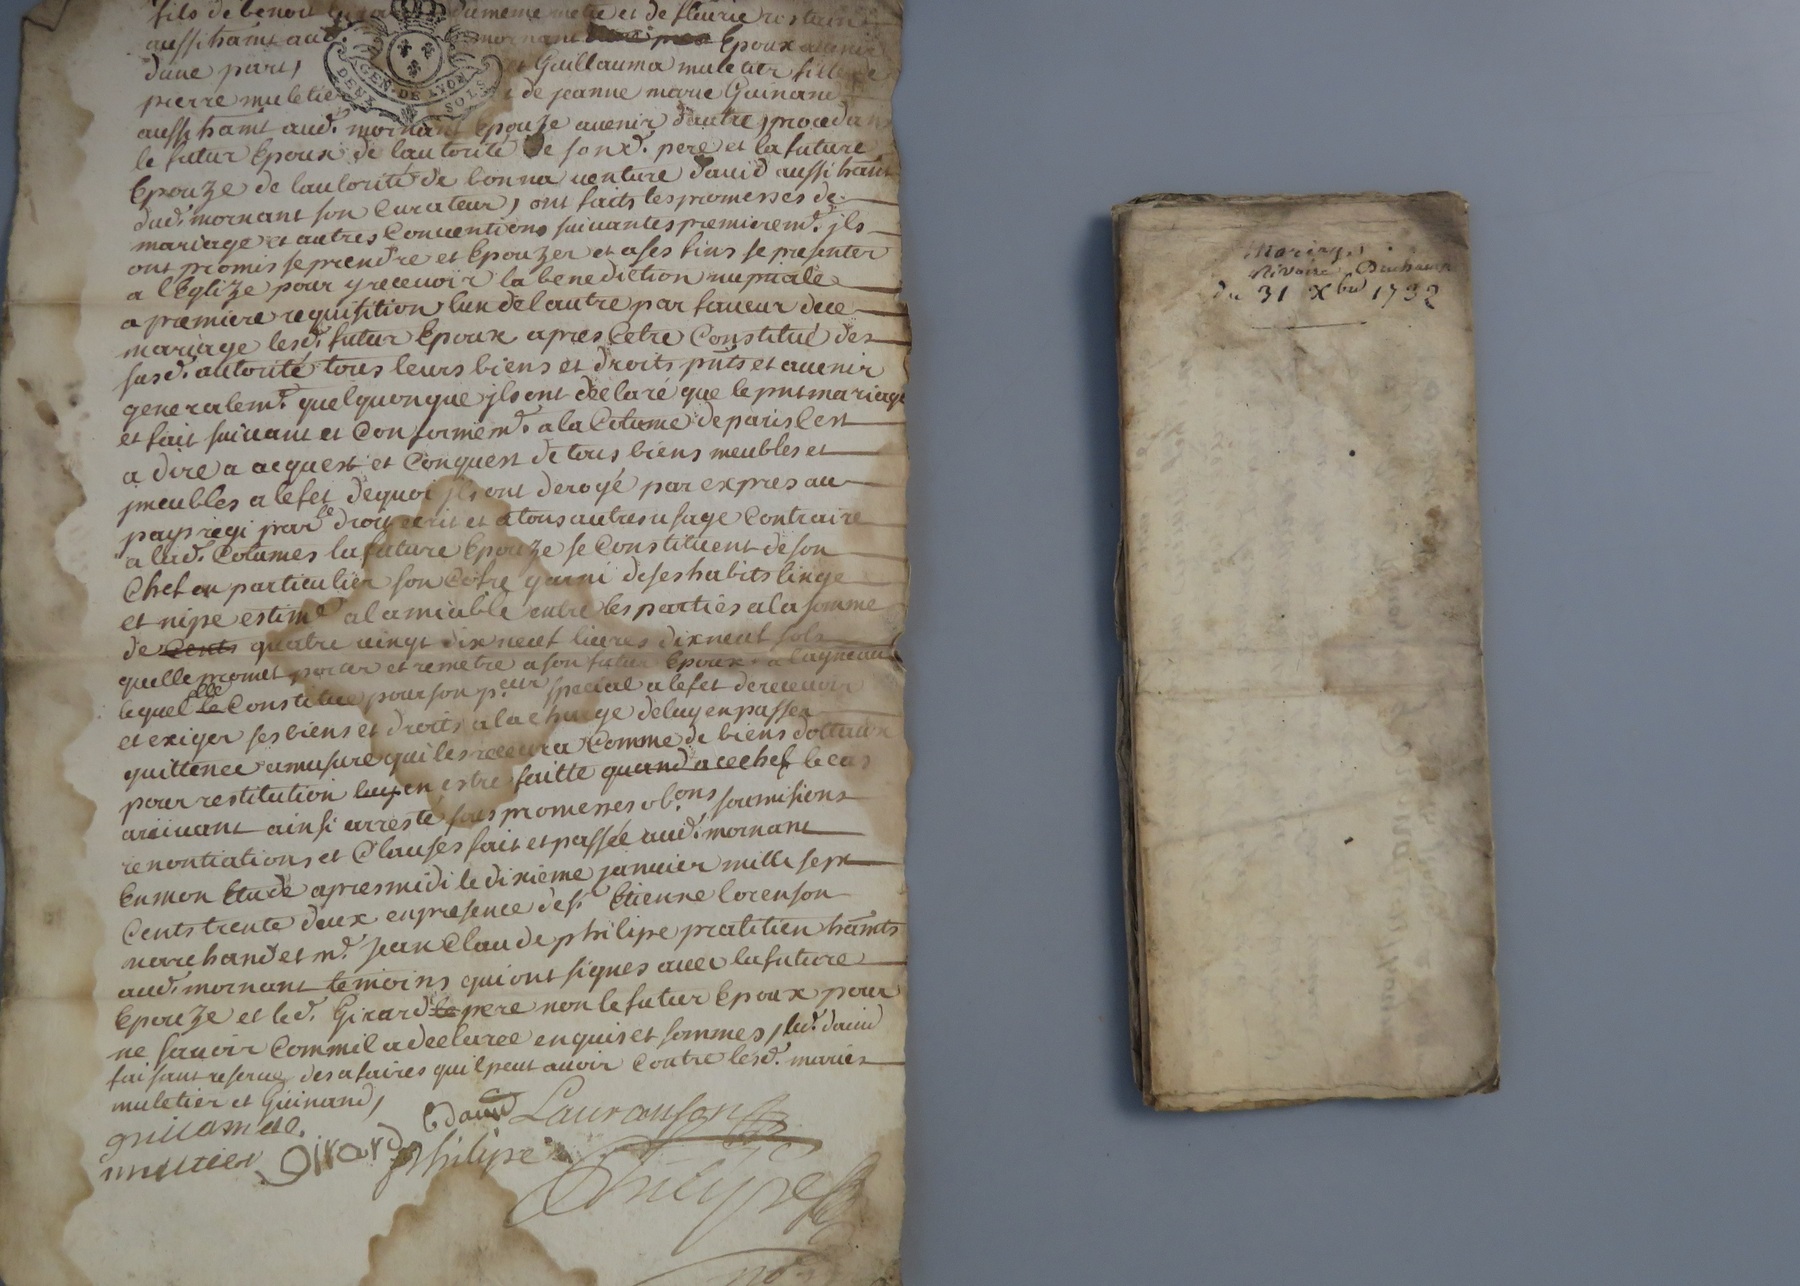 fils de benoit du meme metie et de fleurie
aussi hant aud. mornant Epoux avenir
dune part, et Guillauma muletier fille de
pierre muletie de jeanne marie Guinand
GEN. DE LYON
DEUX SOLS
aussi hant aud. mornant Epouze avenir dautre, procedans
le futur Epoux de lautorité de sond. pere et la future
Epouze de lautorité de bonnaventure david aussi hant
dud. mornant son Curateur, ont faits les promesses de
mariage et autres Conventions suivantes premierem.t ils
ont promis se prendre et Epouzer et a ses fins se presenter
a lEglize pour y recevoir la benediction nuptiale
a premiere requisition lun de lautre par faveur duce
mariage lesd. futur Epoux apres Cetre Constitué des
sasd. autorité tous leurs biens et droits pnts et avenir
generalem.t quelquonque ils ont declaré que le pnt mariage
et fait suivant et Conformem.t a la Cotume de paris Cest
a dire a acquest et Conquest de tous biens meubles et
jmeubles a lefet dequoi ils ont derogé par expres au
pays regi par le droit ecrit et a tous autres usage Contraire
a lad. Cotumes la future Epouze se Constituent de son
Chef en particulier son Cofre garni de ses habits linge
et nipe estimé a lamiable entre les parties a la somme
de Cents quatre vingt dix neuf livres dix neuf sols
quelle promet porter et remetre a son futur Epoux
lequel elle Constitue pour son p.eur special a lefet de recevoir
et exiger ses biens et droits a la charge de luy en passer
quittence amusure qui les recevra Comme de biens dottaux
pour restitution luy en estre faitte quand a ce chef le cas
arivant ainsi arresté sous promesses ob.ons soumisions
renontiations et Clauses fait et passée aud. mornant
En mon Etude apres midi le dixième janvier mille sept
Cents trente deux en presence de s.r Etienne lorenson
marchand et m.e jean Claude philipe pratitien hants
aud. mornant temoins qui ont signes avec la future
Epouze et led. Girard le pere non le futur Epoux pour
ne savoir Comme il a declaree enquis et sommes, led. david
faisant reserve des afaires quil peut avoir Contre lesd. mariés
muletier et Guinand,
guillamae
muletier girard
david Lauranson
philipe
Philipe
Mariage
Rivoire
du 31 Xbre 1732